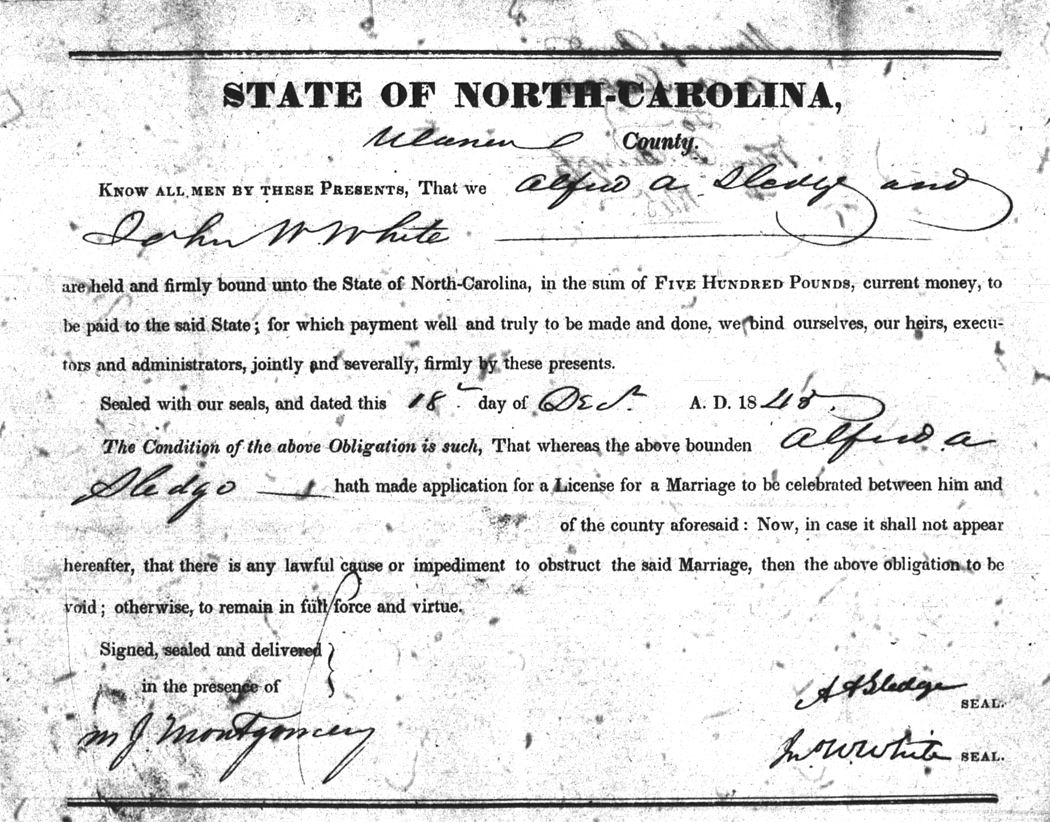 STATE OF NORTH-CAROLINA,
Warren County.
KNOW ALL MEN BY THESE PRESENTS, That we Alfred A Sledge and
John W. White
are held and firmly bound unto the State of North-Carolina, in the sum of FIVE HUNDRED POUNDS, current money, to
be paid to the said State; for which payment well and truly to be made and done, we bind ourselves, our heirs, execu-
tors and administrators, jointly and severally, firmly by these presents.
Sealed with our seals, and dated this 18 day of Decr A. D. 1845.
The Condition of the above Obligation is such, That whereas the above bounden Alfred A
Sledge hath made application for a License for a Marriage to be celebrated between him and
of the county aforesaid: Now, in case it shall not appear
hereafter, that there is any lawful cause or impediment to obstruct the said Marriage, then the above obligation to be
void; otherwise, to remain in full force and virtue.
Signed, sealed and delivered
in the presence of
A A Sledge SEAL.
M J Montgomery
Jno W. White SEAL.